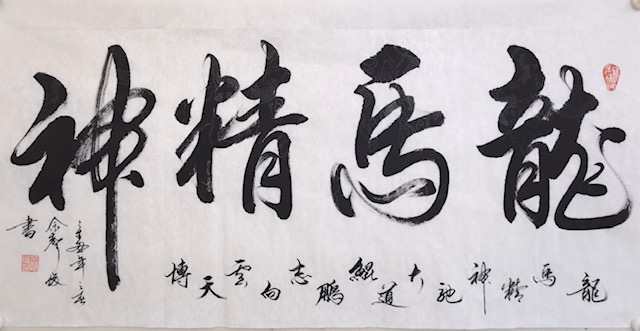 龍馬精神
龍馬精神馳大道鯤鵬志向雲天博
辛丑年
書